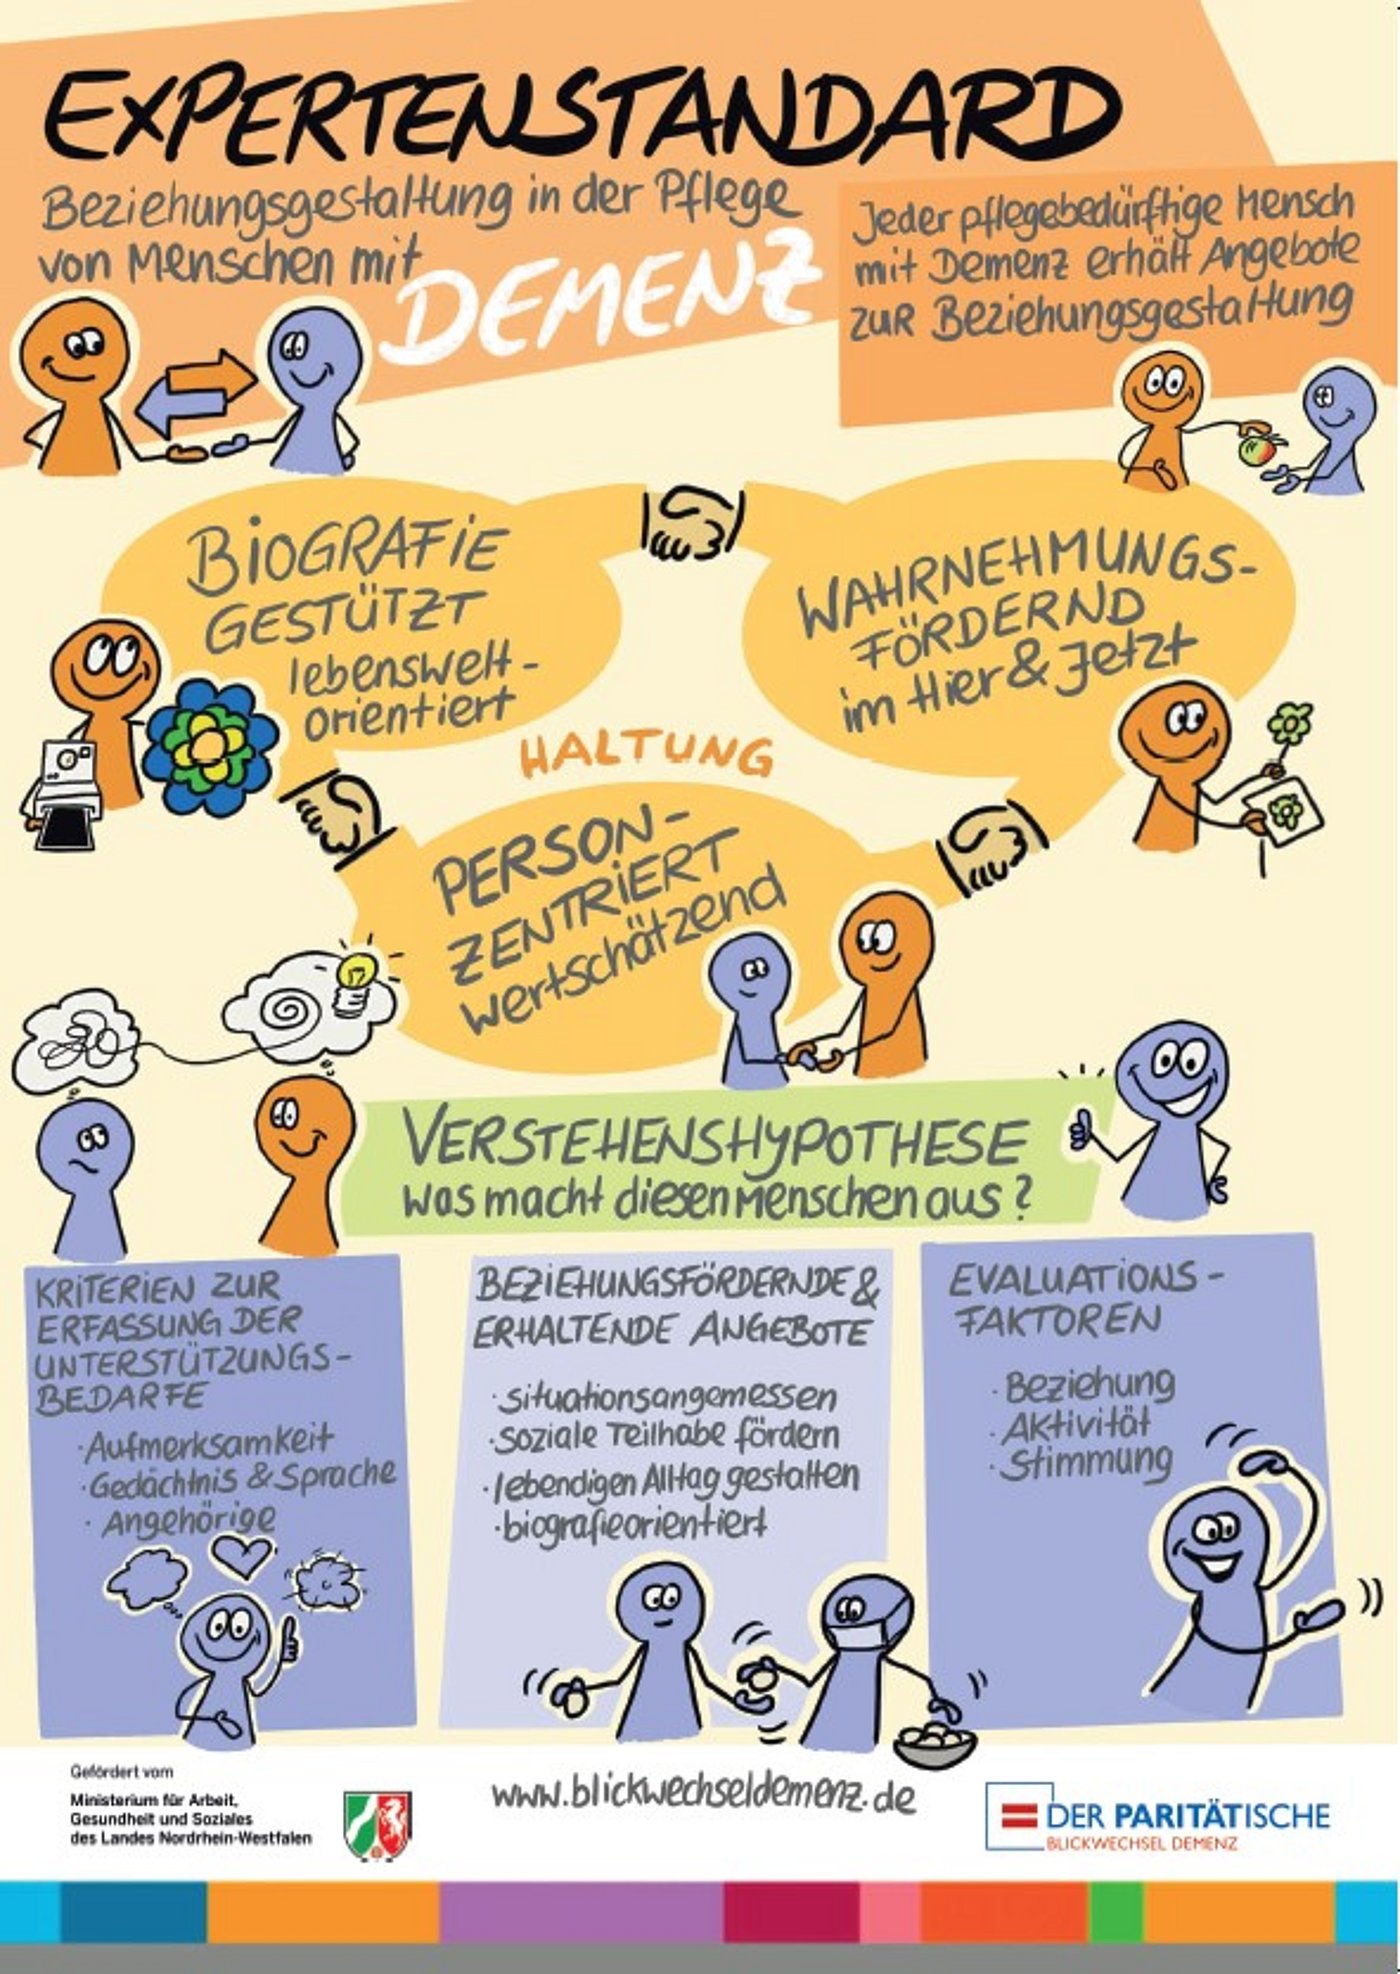 EXPERTENSTANDARD
Beziehungsgestaltung in der Pflege
von Menschen mit
DEMENZ
Jeder pflegebedürftige Mensch
mit Demenz erhält Angebote
zur Beziehungsgestaltung
BIOGRAFIE
GESTÜTZT
lebenswelt-
orientiert
WAHRNEHMUNGS-
FÖRDERND
im Hier & Jetzt
HALTUNG
PERSON-
ZENTRIERT
wertschätzend
VERSTEHENSHYPOTHESE
Was macht diesen Menschen aus?
KRITERIEN ZUR
ERFASSUNG DER
UNTERSTÜTZUNGS-
BEDARFE
· Aufmerksamkeit
· Gedächtnis & Sprache
· Angehörige
BEZIEHUNGSFÖRDERNDE &
ERHALTENDE ANGEBOTE
· situationsangemessen
· soziale Teilhabe fördern
· lebendigen Alltag gestalten
· biografieorientiert
EVALUATIONS-
FAKTOREN
· Beziehung
· Aktivität
· Stimmung
Gefördert vom
Ministerium für Arbeit,
Gesundheit und Soziales
des Landes Nordrhein-Westfalen
www.blickwechseldemenz.de
DER PARITÄTISCHE
BLICKWECHSEL DEMENZ